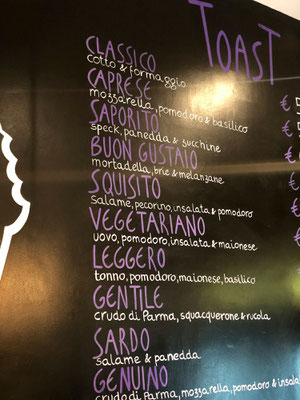 TOAST
CLASSICO
cotto & formaggio
CAPRESE
mozzarella, pomodoro & basilico
SAPORITO
speck, panedda & zucchine
BUON GUSTAIO
mortadella, brie & melanzane
SQUISITO
salame, pecorino, insalata & pomodoro
VEGETARIANO
uovo, pomodoro, insalata & maionese
LEGGERO
tonno, pomodoro, maionese, basilico
GENTILE
crudo di Parma, squacquerone & rucola
SARDO
salame & panedda
GENUINO
crudo di Parma, mozzarella, pomodoro & insala
€
€
€
€
€